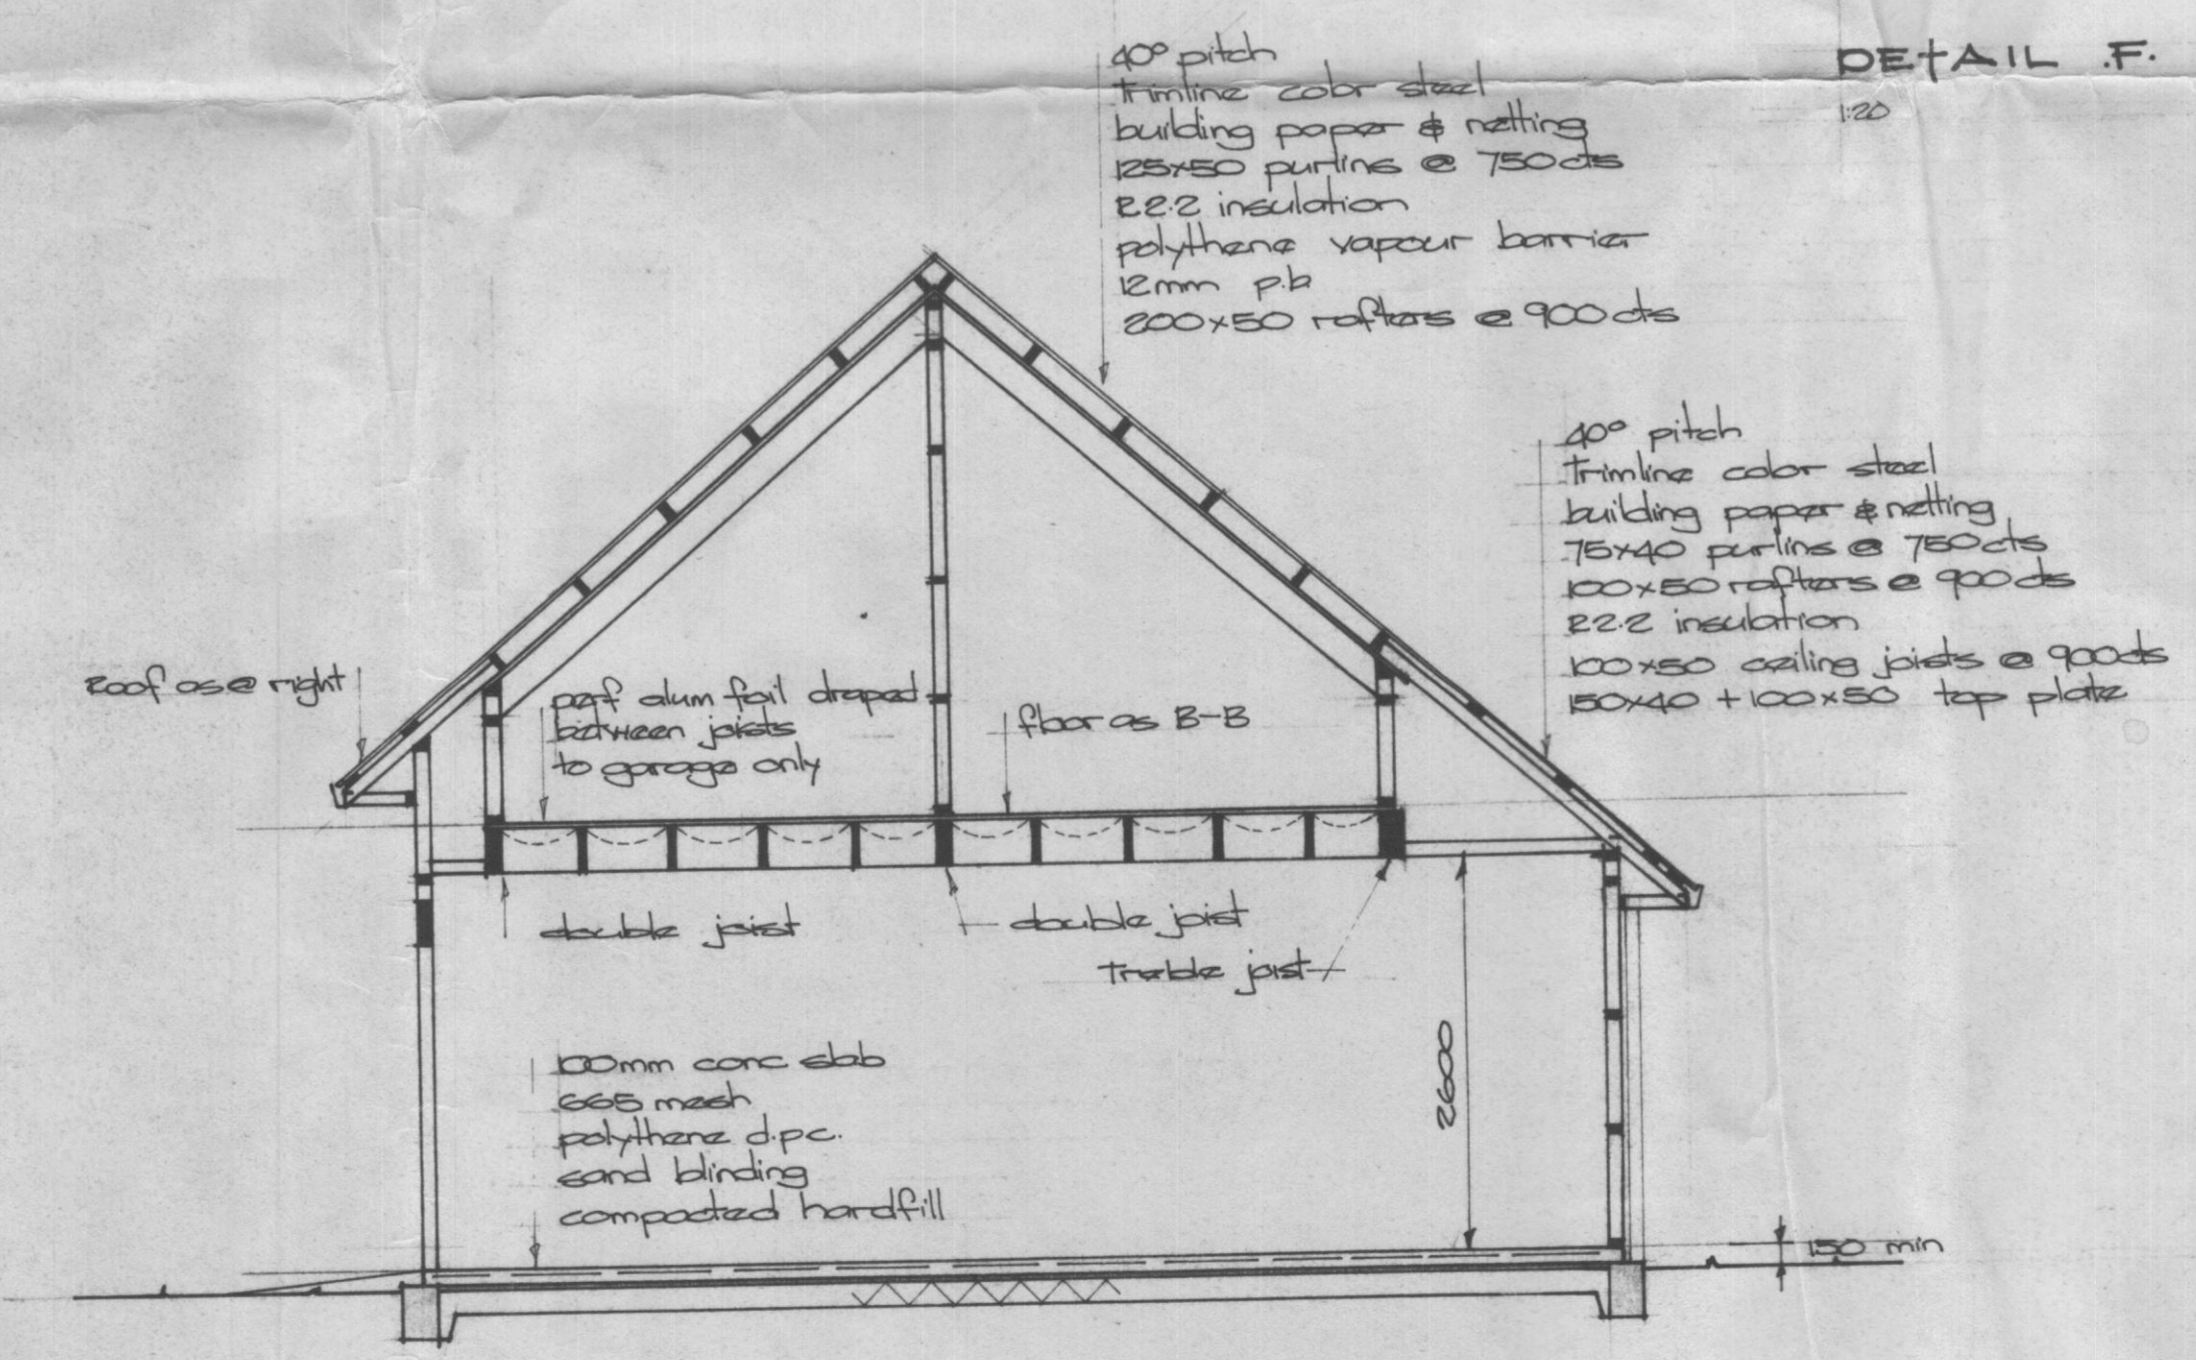 DETAIL .F.
1:20
40° pitch
Trimline color steel
building paper & netting
125x50 purlins @ 750cts
R2.2 insulation
polythene vapour barrier
12mm p.b
200x50 rafters @ 900cts
40° pitch
Trimline color steel
building paper & netting
75x40 purlins @ 750cts
100x50 rafters @ 900cts
R2.2 insulation
100x50 ceiling joists @ 900cts
150x40 + 100x50 top plate
Roof as @ right
perf alum foil draped
between joists
to garage only
floor as B-B
double joist
double joist
treble joist
2600
100mm conc slab
665 mesh
polythene d.p.c.
sand blinding
compacted hardfill
150 min